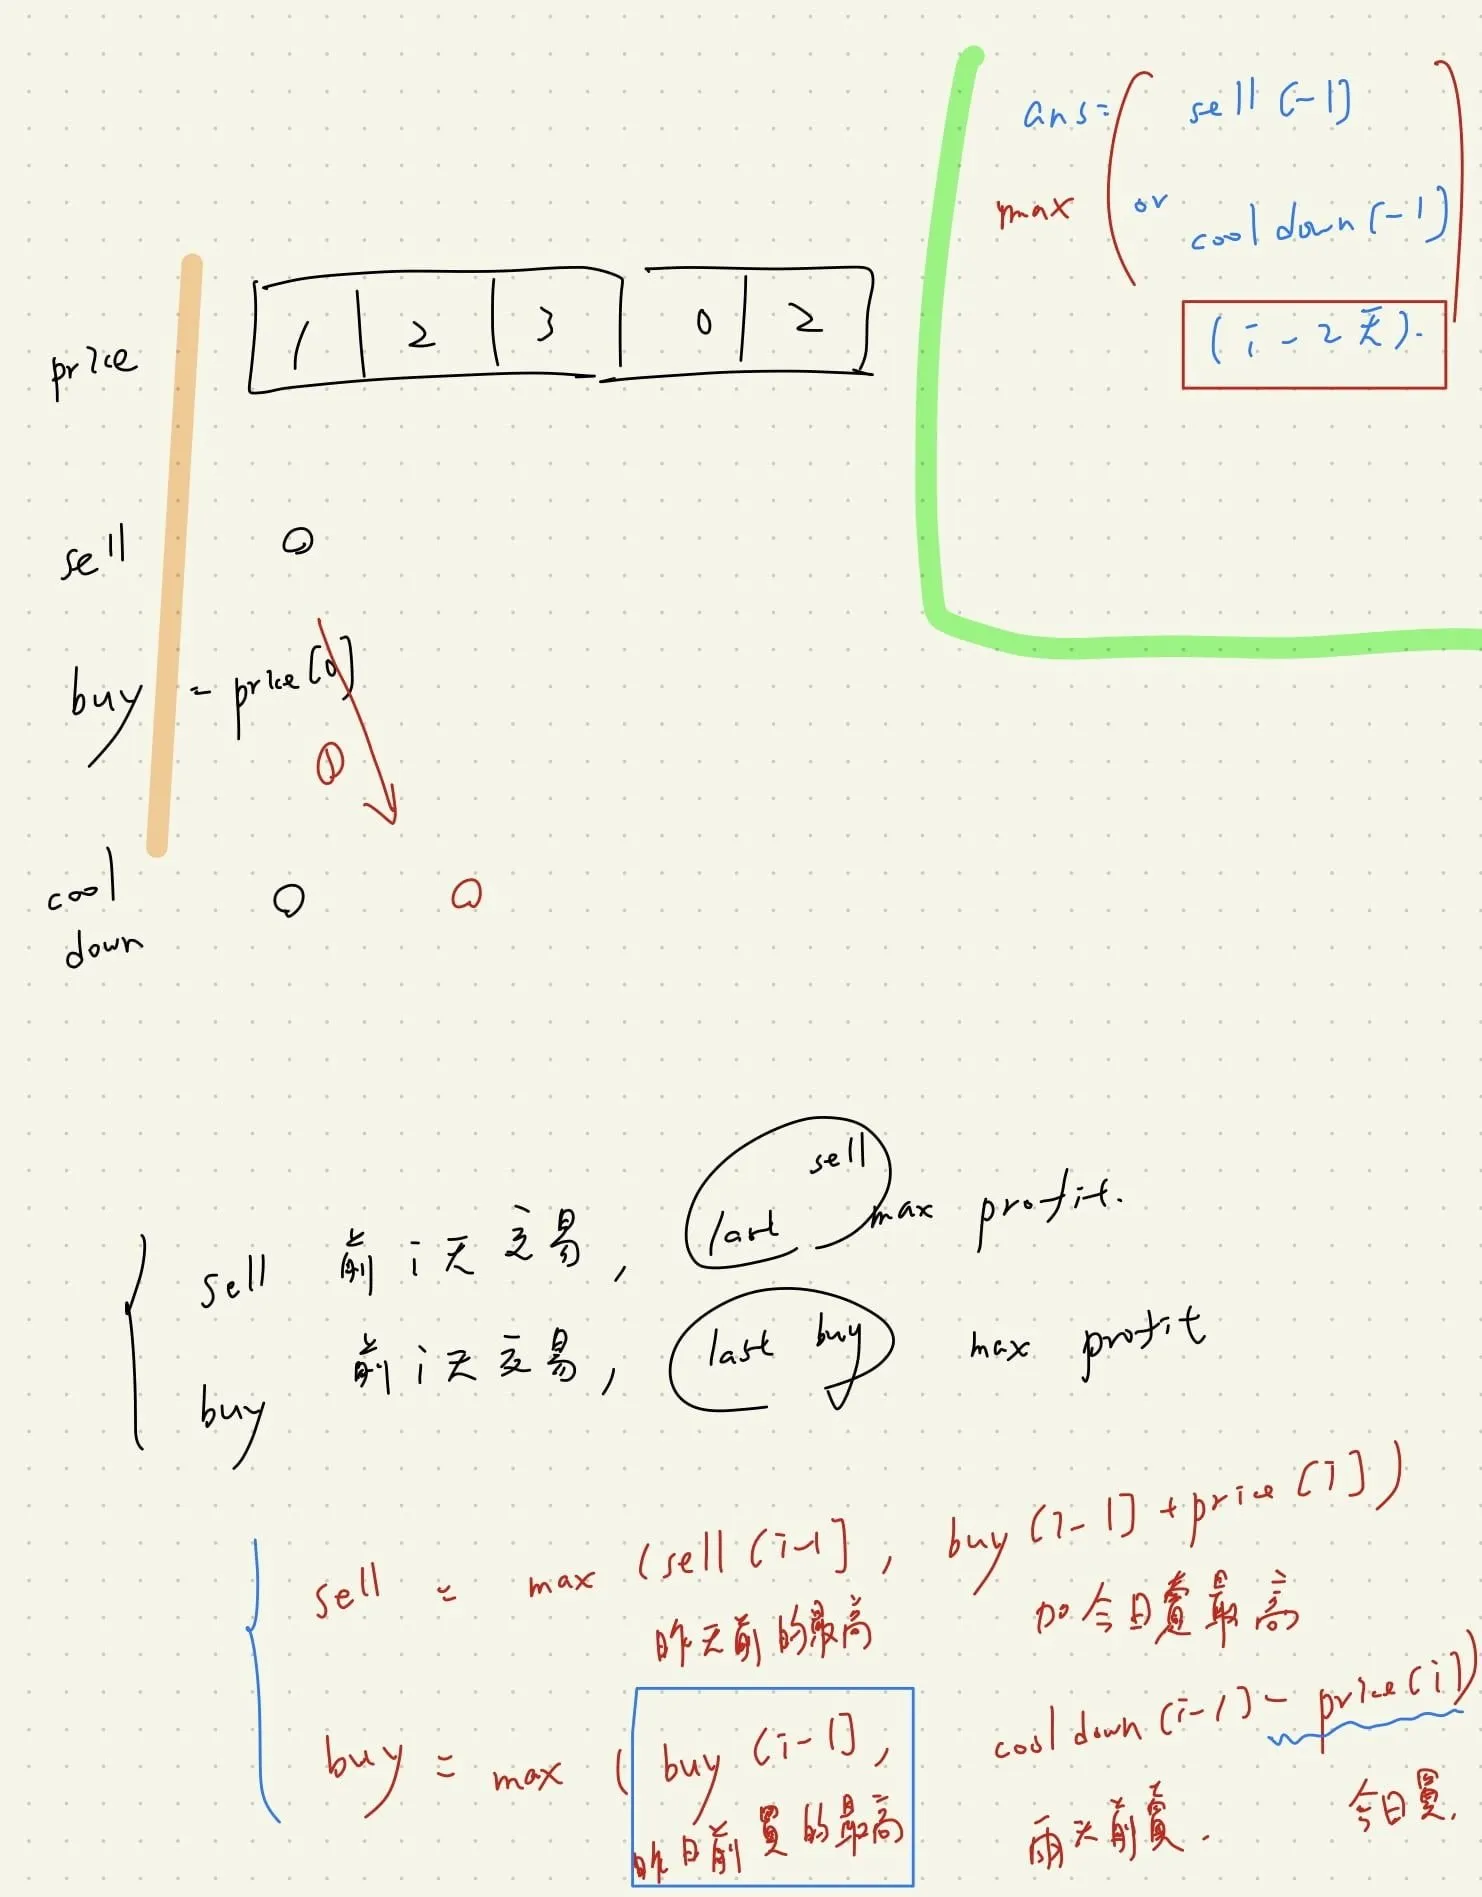 ans= sell [-1]
max or cool down [-1]
(i-2天).
price 1 2 3 0 2
sell 0
buy -price[0]
①
cool 0 0
down
sell 前i天交易, last sell max profit.
buy 前i天交易, last buy max profit
sell = max (sell [i-1], buy [i-1] + price [i])
昨天前的最高 加今日賣最高
buy = max (buy [i-1], cool down [i-1] - price [i])
昨日前買的最高 兩天前賣. 今日買.